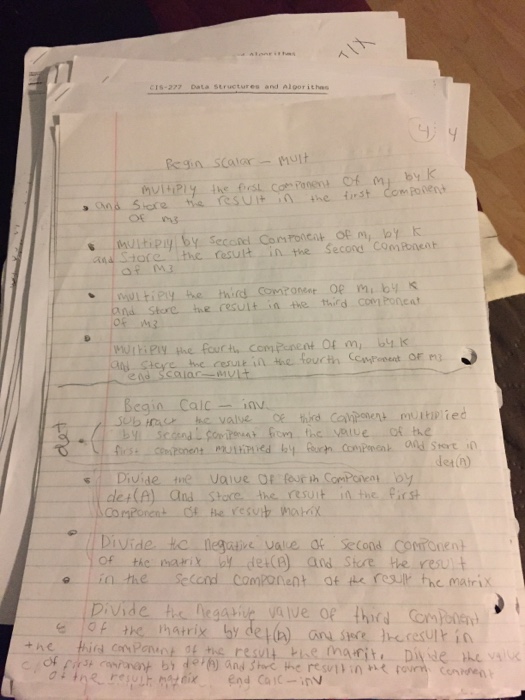 CIS-277 Data Structures and Algorithms
4
Begin Scalar - mult
multiply the first component of m, by K
and Store the result in the first component
of m3
multiply by second component of m, by K
and Store the result in the second component
of m3
multiply the third component of m, by K
and store the result in the third component
of m3
multiply the fourth component of m, by K
and store the result in the fourth component of m3
end scalar-mult
Begin Calc - inv
subtract the value of third component multiplied
by second component from the value of the
first component multiplied by fourth component and store in
det(A)
Divide the value of fourth component by
det(A) and store the result in the first
component of the result matrix
Divide the negative value of second component
of the matrix by det(A) and store the result
in the second component of the result the matrix
Divide the negative value of third component
of the matrix by det(A) and store the result in
the third component of the result the matrix. Divide the value
of first component by det(A) and store the result in the fourth component
of the result matrix end calc-inv